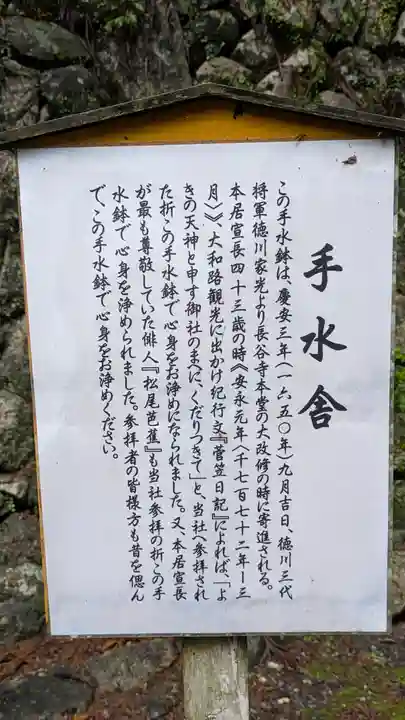 手水舎
この手水鉢は、慶安三年(一六五〇年)九月吉日、徳川三代
将軍徳川家光より長谷寺本堂の大改修の時に寄進される。
本居宣長四十三歳の時《安永元年(千七百七十二年ー三
月)》、大和路観光に出かけ紀行文『菅笠日記』によれば、「よ
きの天神と申す御社のまへに、くだりつきて」と、当社へ参拝され
た折この手水鉢で心身をお浄めになられました。又、本居宣長
が最も尊敬していた俳人『松尾芭蕉』も当社参拝の折この手
水鉢で心身を浄められました。参拝者の皆様方も昔を偲ん
で、この手水鉢で心身をお浄めください。